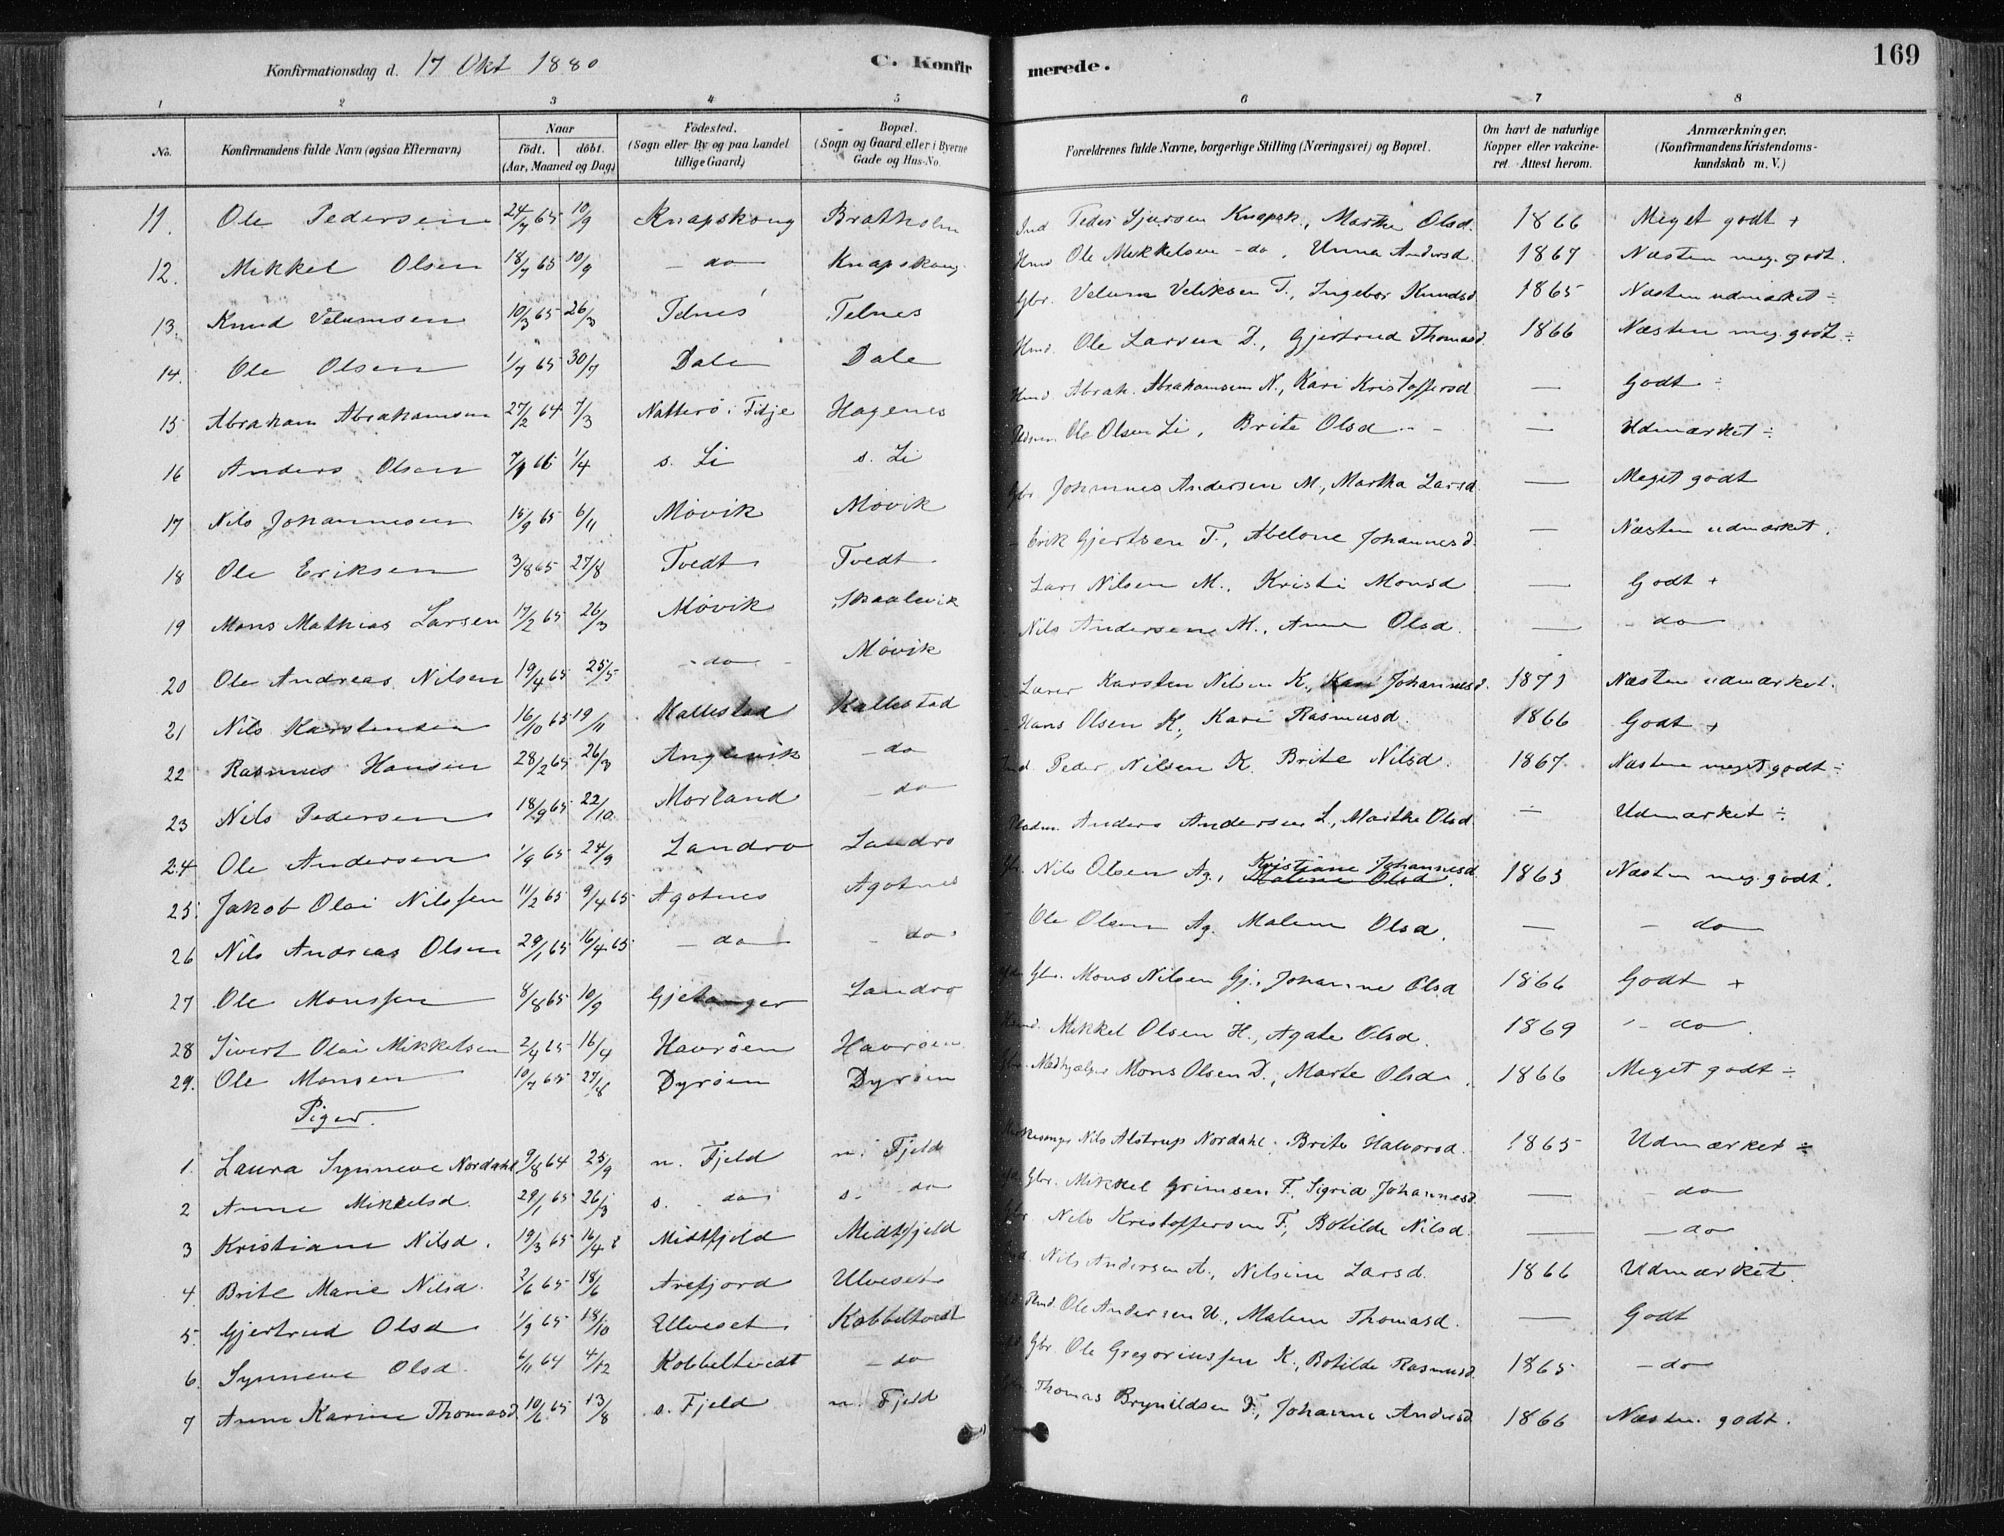 Konfirmationsdag d. 17 Okt 1880 C. Konfirmerede. 169
1 2 3 4 5 6 7 8
No. Konfirmandens fulde Navn (ogsaa Efternavn) Naar født. døbt. (Aar, Maaned og Dag) Födested. (Sogn eller By og paa Landet tillige Gaard) Bopæl. (Sogn og Gaard eller i Byerne Gade og Hus-No. Forældrenes fulde Navne, borgerlige Stilling (Næringsvei) og Bopæl. Om havt de naturlige Kopper eller vakcineret. Attest herom. Anmærkninger. (Konfirmandens Kristendomskundskab m. V.)
11. Ole Pedersen 24/7 65 10/9 Knapskoug Bratholm Ind Peder Sjursen Knapsk., Marthe Olsd. 1866 Meget godt +
12. Mikkel Olsen 18/7 65 10/9 - do Knapskoug Hmd Ole Mikkelsen - do, Unna Andersd. 1867 Næsten meg. godt.
13. Knud Velumsen 10/3 65 26/3 Telnes Telnes Gbr. Velum Veliksen T., Ingebor Knudsd 1865 Næsten udmærket ÷
14. Ole Olsen 1/7 65 30/7 Dale Dale Hmd. Ole Larsen D., Gjertrud Thomasd. 1866 Næsten meg. godt ÷
15 Abraham Abrahamsen 27/2 64 7/3 Natterö i Fitje Hagenes Hmd. Abrah. Abrahamsen N., Kari Kristoffersd — Godt ÷
16 Anders Olsen 7/1 66 1/4 s. Li s. Li Ole Olsen Li, Brite Olsd — Udmærket ÷
17 Nils Johannesen 15/9 65 6/11 Movik Movik Gbr Johannes Andersen M., Martha Larsd. — Meget godt
18 Ole Eriksen 3/8 65 27/8 Tvedt Tvedt - Erik Gjertsen T., Abelone Johannesd. — Næsten udmærket.
19 Mons Mathias Larsen 17/2 65 26/3 Movik Skaalevik Lars Nilsen M., Kristi Monsd — Godt +
20 Ole Andreas Nilsen 19/4 65 25/5 - do - Movik Nils Andersen M., Anne Olsd. — - do
21 Nils Karstensen 16/10 65 19/11 Kallestad Kallestad Lærer Karsten Nilsen K., Kari Johannesd. 1871 Næsten udmærket.
22 Rasmus Hansen 28/2 65 26/3 Anglevik - do Hans Olsen K, Kari Rasmusd. 1866 Godt +
23 Nils Pedersen 18/9 65 22/10 Morland - do Ind. Peder Nilsen K. Brite Nilsd. 1867 Næsten meget godt ÷
24 Ole Andersen 1/9 65 24/9 Landro Landro Anders Andersen L, Marthe Olsd. — Udmærket ÷
25. Jakob Olai Nilssen 11/2 65 9/4 65 Agotnes Agotnes Gbr. Nils Olsen Ag., Kristiane Johannesd. Malene Olsd. 1865 Næsten meg. godt.
26 Nils Andreas Olsen 29/1 65 16/4 65 - do - do Ole Olsen Ag. Malene Olsd. — - do
27 Ole Monssen 8/8 65 10/9 Gjetanger Landro Gbr. Mons Nilsen Gj., Johanne Olsd 1866 Godt +
28 Sivert Olai Mikkelsen 2/4 65 16/4 Havröen Havröen Mikkel Olsen H., Agate Olsd. 1869 - do.
29. Ole Monsen 10/7 65 27/8 Dyröen Dyröen Medhjælper Mons Olsen D., Marte Olsd. 1866 Meget godt ÷
Piger.
1. Laura Synneve Nordahl 9/8 64 25/9 n. Fjeld n. Fjeld Nils Alstrup Nordahl. Brite Halvorsd. 1865 Udmærket ÷
2 Anne Mikkelsd. 29/1 65 26/3 s. do s. do Gbr. Mikkel Grimsen F., Sigrid Johannesd. — - do
3 Kristiane Nilsd. 19/3 65 16/4 Midtfjeld Midtfjeld Gbr Nils Kristoffersen F., Botilde Nilsd. — - do
4. Brite Marie Nilsd. 2/6 65 18/6 Arefjord Ulveset Nils Andersen A., Nilsine Larsd. 1866 Udmærket.
5. Gjertrud Olsd 1/9 65 18/10 Ulveset Kobbeltvedt Hmd. Ole Andersen U., Malene Thomasd. — Godt
6. Synneve Olsd. 6/11 64 4/12 Kobbeltvedt - do Gbr Ole Gregoriussen K., Botilde Rasmusd. 1865 - do
7 Anne Karine Thomasd. 10/6 65 13/8 s. Fjeld n. Fjeld Thomas Brynildsen F., Johanne Andersd 1866 Næsten godt.